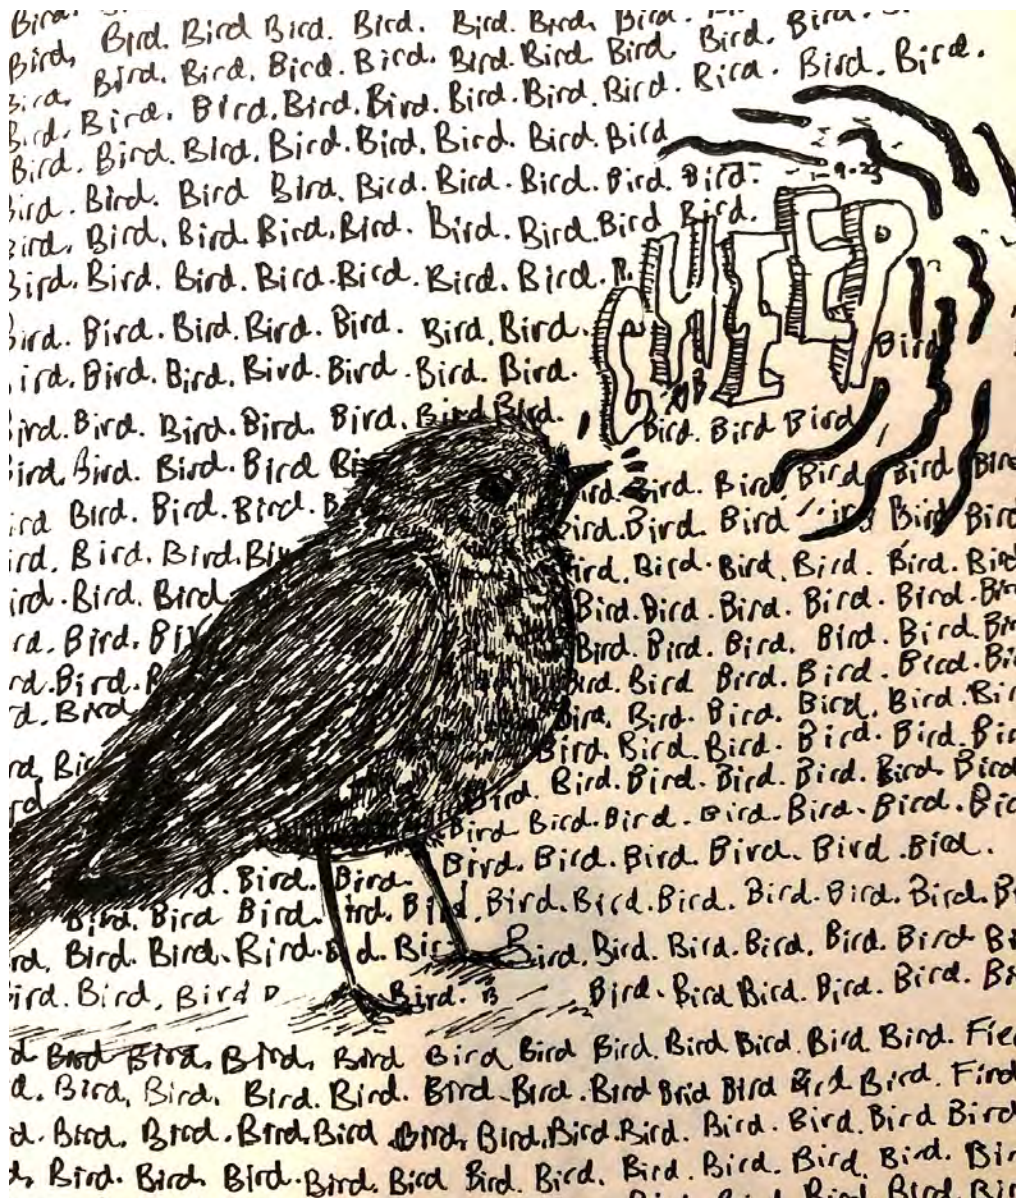 Bird. Bird. Bird.
Bird, Bird. Bird Bird. Bird. Bird. Bird, Bird. Bird. Bird.
Bird. Bird. Bird. Bird. Bird. Bird. Bird. Bird. Bird. Bird. Bird.
Bird. Bird. Bird. Bird. Bird. Bird. Bird. Bird. Bird. Bird. Bird.
Bird. Bird. Bird. Bird. Bird. Bird. Bird. Bird
Bird. Bird Bird. Bird. Bird. Bird. Bird. Bird.
9.23
Bird. Bird. Bird. Bird. Bird. Bird. Bird Bird.
Bird. Bird. Bird. Bird. Bird. Bird. Bird.
CHEEP
Bird. Bird. Bird. Bird. Bird, Bird.
Bird
ird. Bird. Bird. Bird. Bird. Bird. Bird.
ird. Bird. Bird. Bird. Bird. Bird Bird. Bird. Bird Bird
ird. Bird. Bird. Bird Bi ird. Bird. Bird Bird Bird Bird
rd Bird. Bird. Bird. B ird. Bird. Bird Bird Bird
rd. Bird. Bird. Bir ird. Bird. Bird. Bird. Bird. Bird
ird. Bird. Bird Bird. Bird. Bird. Bird. Bird. Bir
rd. Bird. Bi Bird. Bird. Bird. Bird. Bird. Bir
rd. Bird. B ird. Bird Bird. Bird. Bird. Bi
d. Bird Bird. Bird. Bird. Bird. Bird. Bir
Bird. Bird. Bird. Bird. Bird. Bir
rd. Bir Bird. Bird. Bird. Bird. Bird. Bird
rd Bird Bird. Bird. Bird. Bird. Bird. Bi
Bird. Bird. Bird. Bird. Bird. Bird.
d. Bird. Bird.
Bird. Bird Bird. ird. Bird. Bird. Bird. Bird. Bird. Bird. Bird. B
rd. Bird. Bird. Bird. B d. Bir Bird. Bird. Bird. Bird. Bird. Bird B
ird. Bird, Bird D Bird. B Bird. Bird Bird. Bird. Bird. Bi
d Bird Bird. Bird. Bird Bird Bird Bird. Bird Bird. Bird Bird. Fie
d. Bird, Bird. Bird. Bird. Bird. Bird. Bird Bird Bird Bird Bird. Find
d. Bird. Bird. Bird. Bird Bird. Bird. Bird. Bird. Bird. Bird. Bird Bird
d. Bird. Bird. Bird. Bird. Bird Bird. Bird. Bird. Bird. Bird. Bird. Bir
Bird Bird Bird Bird Bir